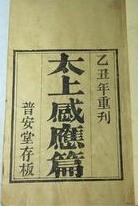 乙丑年重刊
太上感應篇
普安堂存板